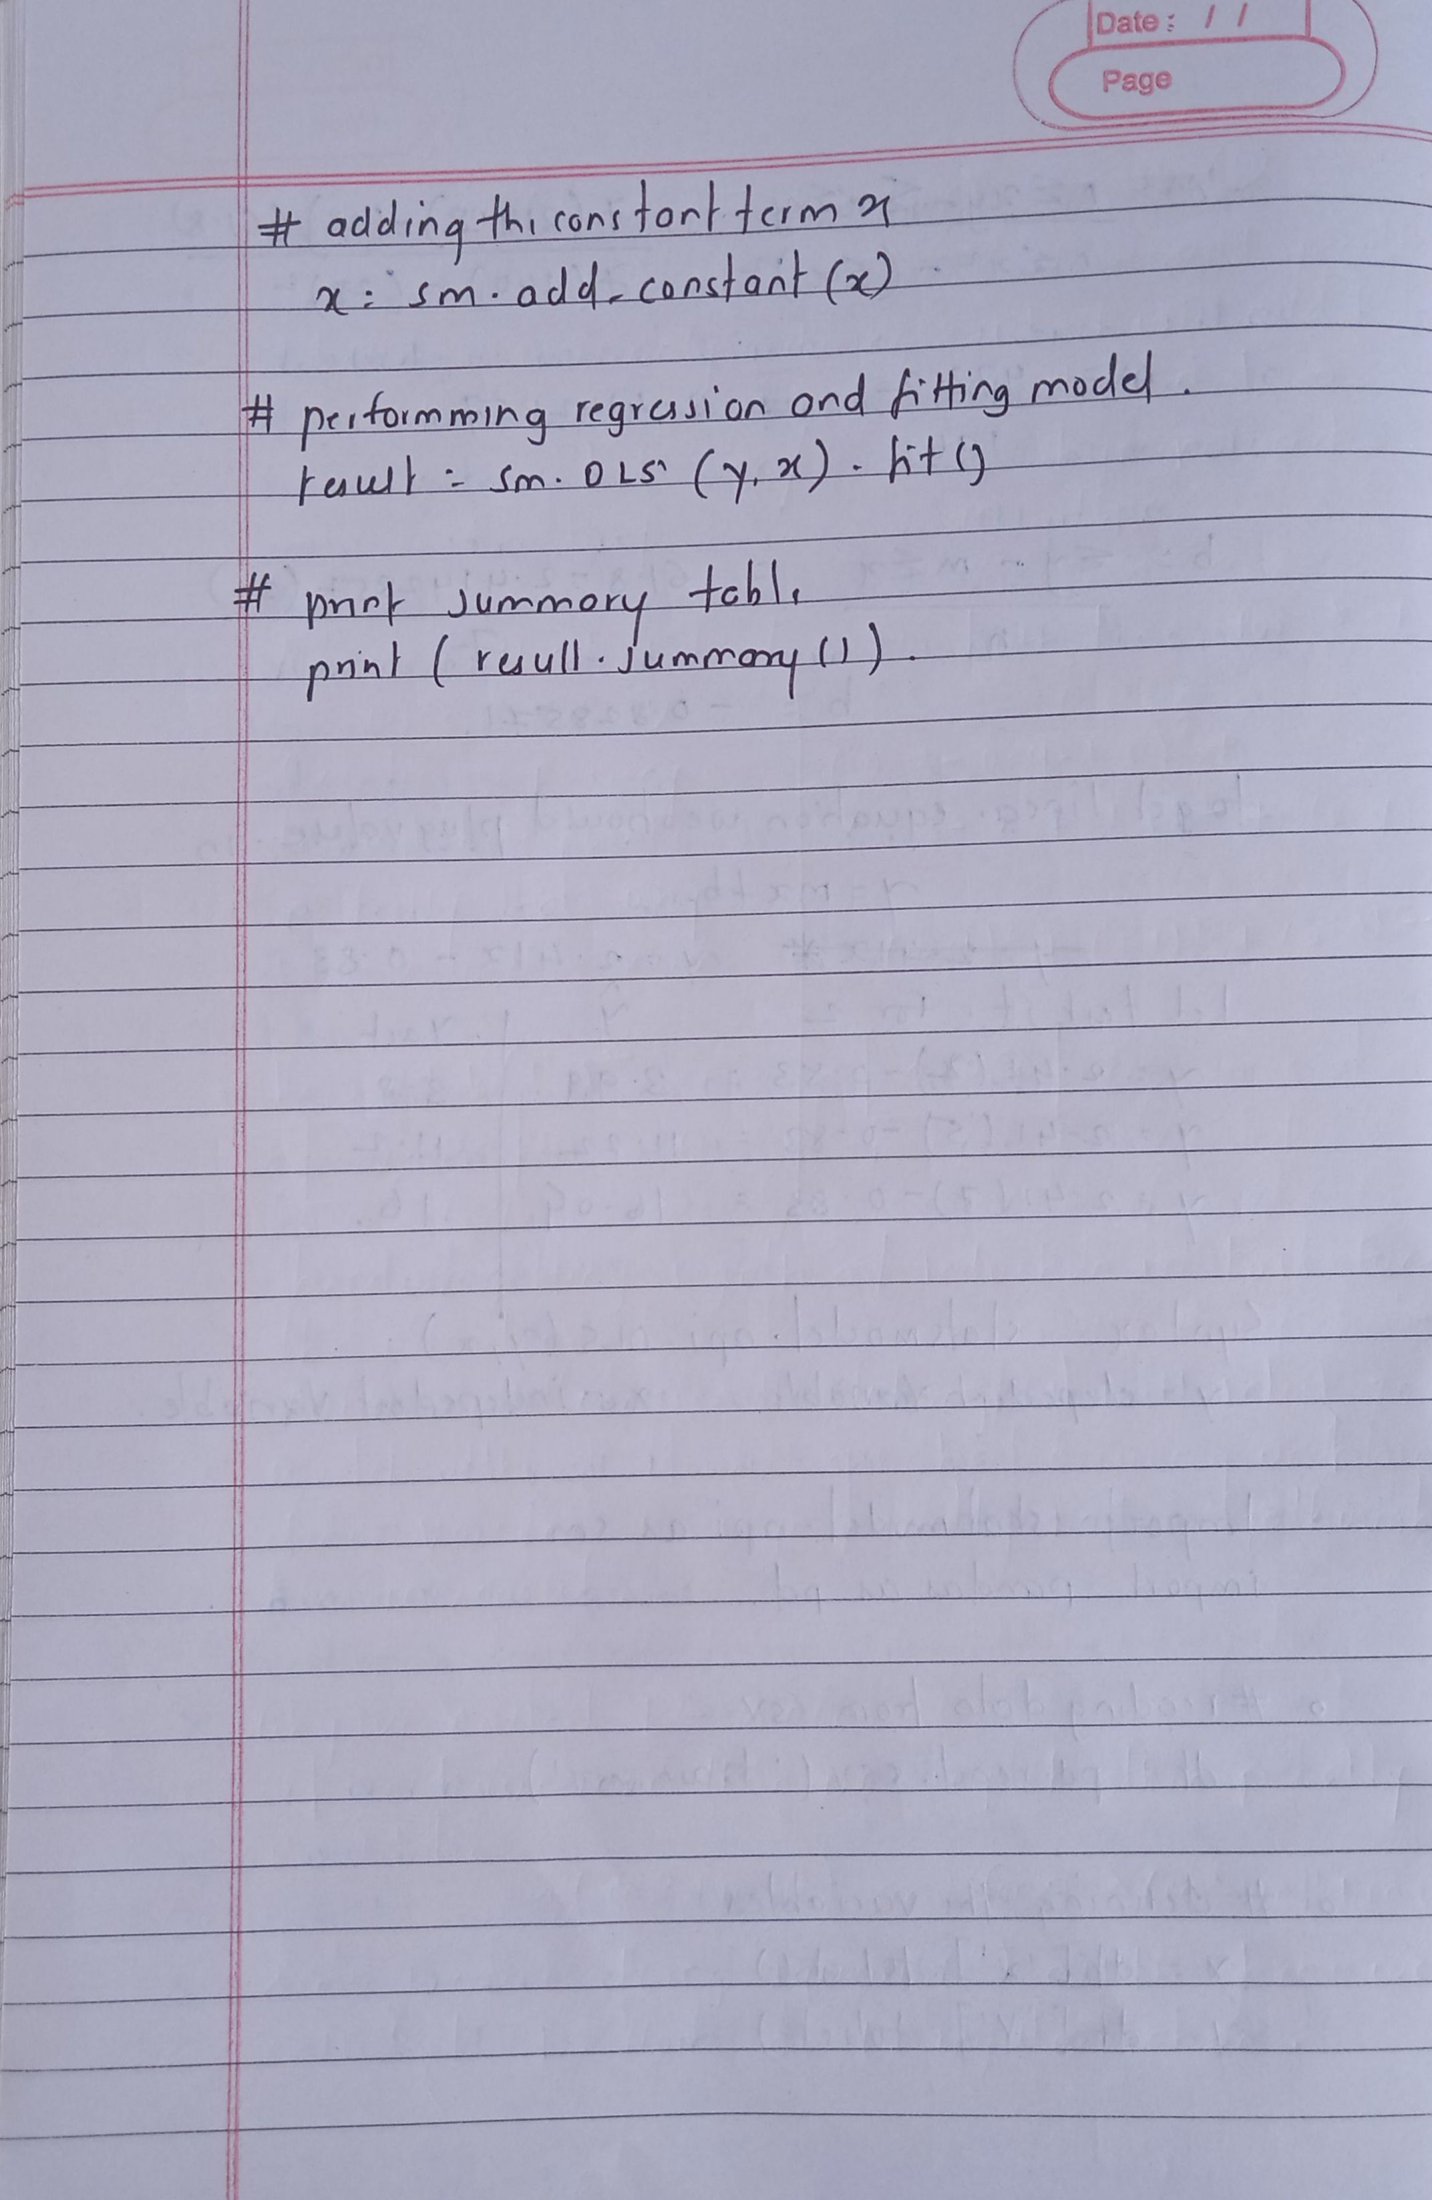 Date : / /
Page
# adding the constant term x
x = sm. add_constant (x)
# performming regression and fitting model.
result = sm. OLS (y, x). fit ()
# print summary table
print ( result. summary ()).